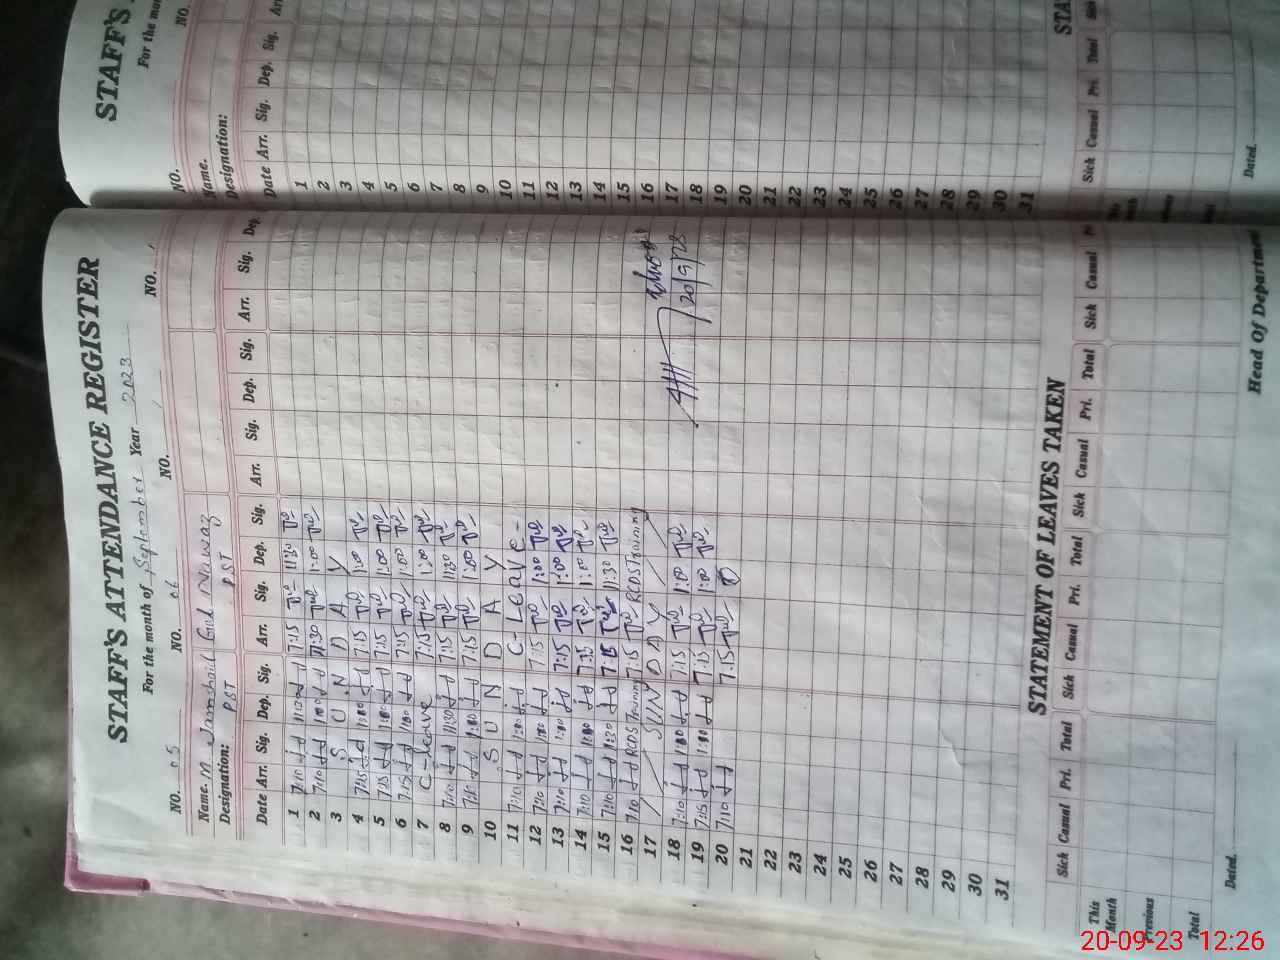 STAFF'S ATTENDANCE REGISTER
For the month of September Year 2023
NO. 05 NO. 06 NO. NO.
Name. M. Jamshaid Gul Nawaz
Designation: PST PST
Date Arr. Sig. Dep. Sig. Arr. Sig. Dep. Sig. Arr. Sig. Dep. Sig. Arr. Sig. Dep.
1 7:10 11:30 7:15 11:30
2 7:10 1:00 7:30 1:00
3 S U N D A Y
4 7:15 1:00 7:15 1:00
5 7:15 1:00 7:15 1:00
6 7:15 1:00 7:15 1:00
7 C-leave 7:15 1:00
8 7:10 11:30 7:15 11:30
9 7:15 1:00 7:15 1:00
10 S U N D A Y
11 7:10 1:00 C-Leave-
12 7:10 1:00 7:15 1:00
13 7:10 1:00 7:15 1:00
14 7:10 1:00 7:15 1:00
15 7:10 1:30 7:15 11:30
16 7:10 RCDS Training 7:15 RCDS Training
17 SUN DAY
18 7:10 1:00 7:15 1:00
19 7:15 1:00 7:15 1:00
20 7:10 7:15
21
22
23
24
25
26
27
28
29
30
31
20/9/23
STATEMENT OF LEAVES TAKEN
Sick Casual Pri. Total Sick Casual Pri. Total Sick Casual Pri. Total Sick Casual
This Month
Previous
Total
Dated.
Head Of Department
STAFF'S
For the mo
NO. NO.
Name.
Designation:
Date Arr. Sig. Dep. Sig. Arr
1
2
3
4
5
6
7
8
9
10
11
12
13
14
15
16
17
18
19
20
21
22
23
24
25
26
27
28
29
30
31
STA
Sick Casual Pri. Total Sick
Dated.
20-09-23 12:26